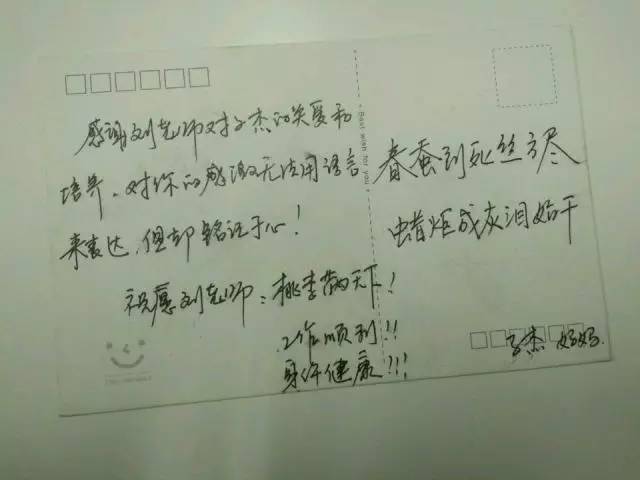 感谢刘老师对子杰的关爱和
培养。对你的感激无法用语言
来表达,但却铭记于心!
祝愿刘老师:桃李满天下!
工作顺利!!
身体健康!!!
Best wish for you
春蚕到死丝方尽
蜡炬成灰泪始干
子杰 妈妈.